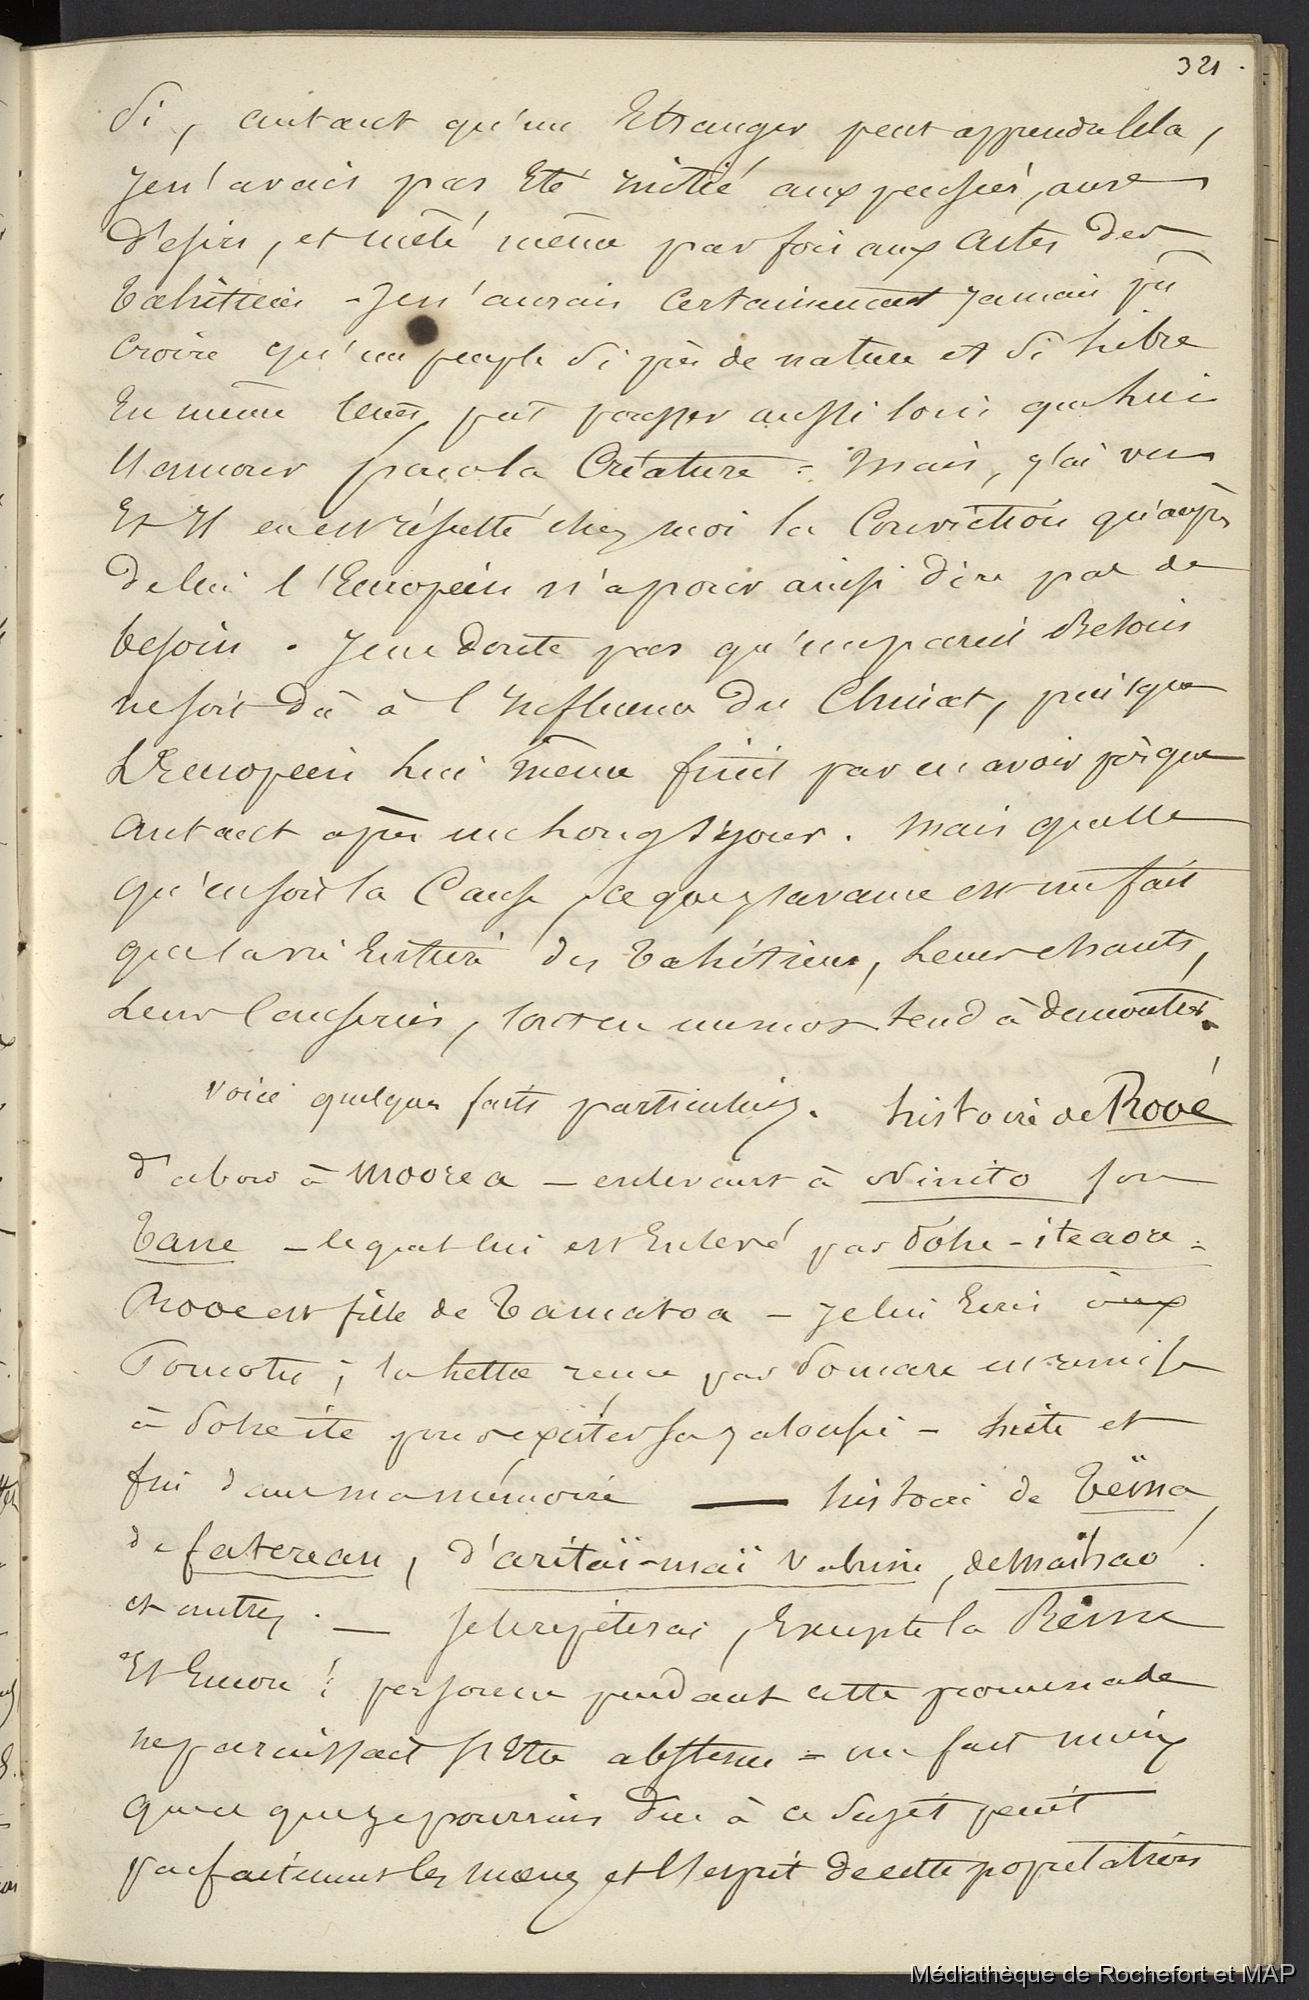 321.
Si, autant qu'un Etranger peut apprendre cela,
je n'avais pas Eté initié aux pensées, aux
désirs, et mêlé même parfois aux actes des
Tahitiens - Je n'aurais certainement jamais pu
croire qu'un peuple si près de nature et si libre
En même tems, put pousser aussi loin que lui
l'amour pour la Créature = Mais, j'ai vu
Et Il en est résulté chez moi la Conviction qu'auprès
de lui l'Européen n'a pour ainsi dire pas de
besoin. Je ne doute pas qu'un pareil besoin
ne soit dû à l'Influence du Climat, puisque
L'Européen lui même finit par en avoir presque
autant après un long séjour. Mais quelle
qu'en soit la Cause, ce que j'avance est un fait
que la vie Entière des Tahitiens, leurs chants,
leurs Causeries, tout en un mot tend à démontrer.
Voici quelques faits particuliers. histoire de Rooé
d'abord à Moorea - enlevant à Ninito son
Tane - lequel lui est Enlevé par Pohe-iteaore =
Rooe est fille de Tamatoa - Je lui Ecris aux
Pomotu; la lettre reçue par Pomare est remise
à Pohe ite pour exciter sa jalousie - suite et
fin dans ma mémoire — histoire de Teïna,
de fatereau, d'aritaï-maï Vahine, de Maihao.
et autres. — Je le répéterai, Excepté la Reine
Et Encore! personne pendant cette promenade
ne paraissait s'Etre abstenu = un fait mieux
que ce que je pourrais dire à ce sujet peint
parfaitement les mœurs et l'esprit de cette population
Médiathèque de Rochefort et MAP